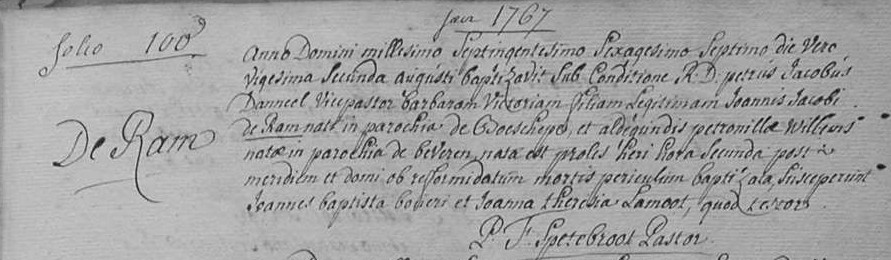 jaer 1767
folio 100
Anno Domini millesimo Septingentesimo Sexagesimo Septimo die vero
vigesima Secunda augusti baptizavit Sub Conditione R. D. petrus Jacobus
Danneel Vicepastor barbaram Victoriam filiam Legitimam Joannis Jacobi
de Ram nati in parochia de Boeschepe, et aldegundis petronillæ Willems
De Ram
natæ in parochia de beveren, nata est proles heri hora Secunda post
meridiem et domi ob reformidatum mortis periculum baptizata, Susceperunt
Joannes baptista boveri et Joanna theresia Lamoot, quod testor
P. F. Spetebroot Pastor